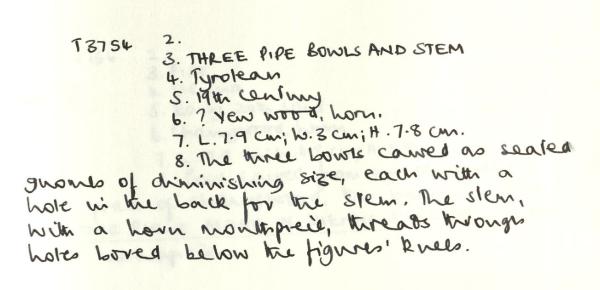 T3754 2.
3. THREE PIPE BOWLS AND STEM
4. Tyrolean
5. 19th century
6. ? Yew wood, horn.
7. L. 7.9 cm; W. 3 cm; H. 7.8 cm.
8. The three bowls carved as seated
gnomes of diminishing size, each with a
hole in the back for the stem. The stem,
with a horn mouthpiece, threads through
holes bored below the figures' knees.